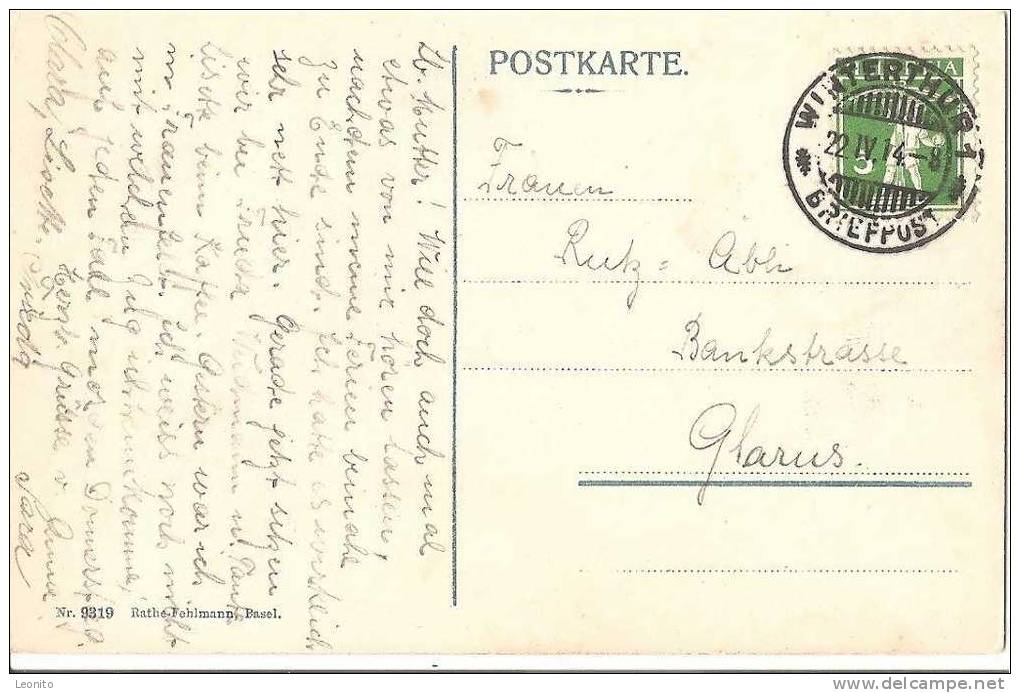 POSTKARTE.
HELVETIA
WINTERTHUR 1
22.IV.14.–8
BRIEFPOST
5
Frauen
Rutz = Abli
Bankstrasse
Glarus.
Lb. Mutter! Will doch auch mal
etwas von mir hören lassen,
nachdem meine Ferien beinahe
zu Ende sind. Ich hatte es wirklich
sehr nett hier. Gerade jetzt sitzen
wir bei Trudi Widmann u. Tante
Lisette beim Kaffee. Gestern war ich
in Frauenfeld. Ich weiss noch nicht
mit welchem Zug ich heimkomme,
auf jeden Fall morgen Donnerstag.
Herzl. Grüsse v. Anna
Clara, Lisette, Frieda
Sara
Nr. 9319 Rathe-Fehlmann, Basel.
Leonito
delcampe.net